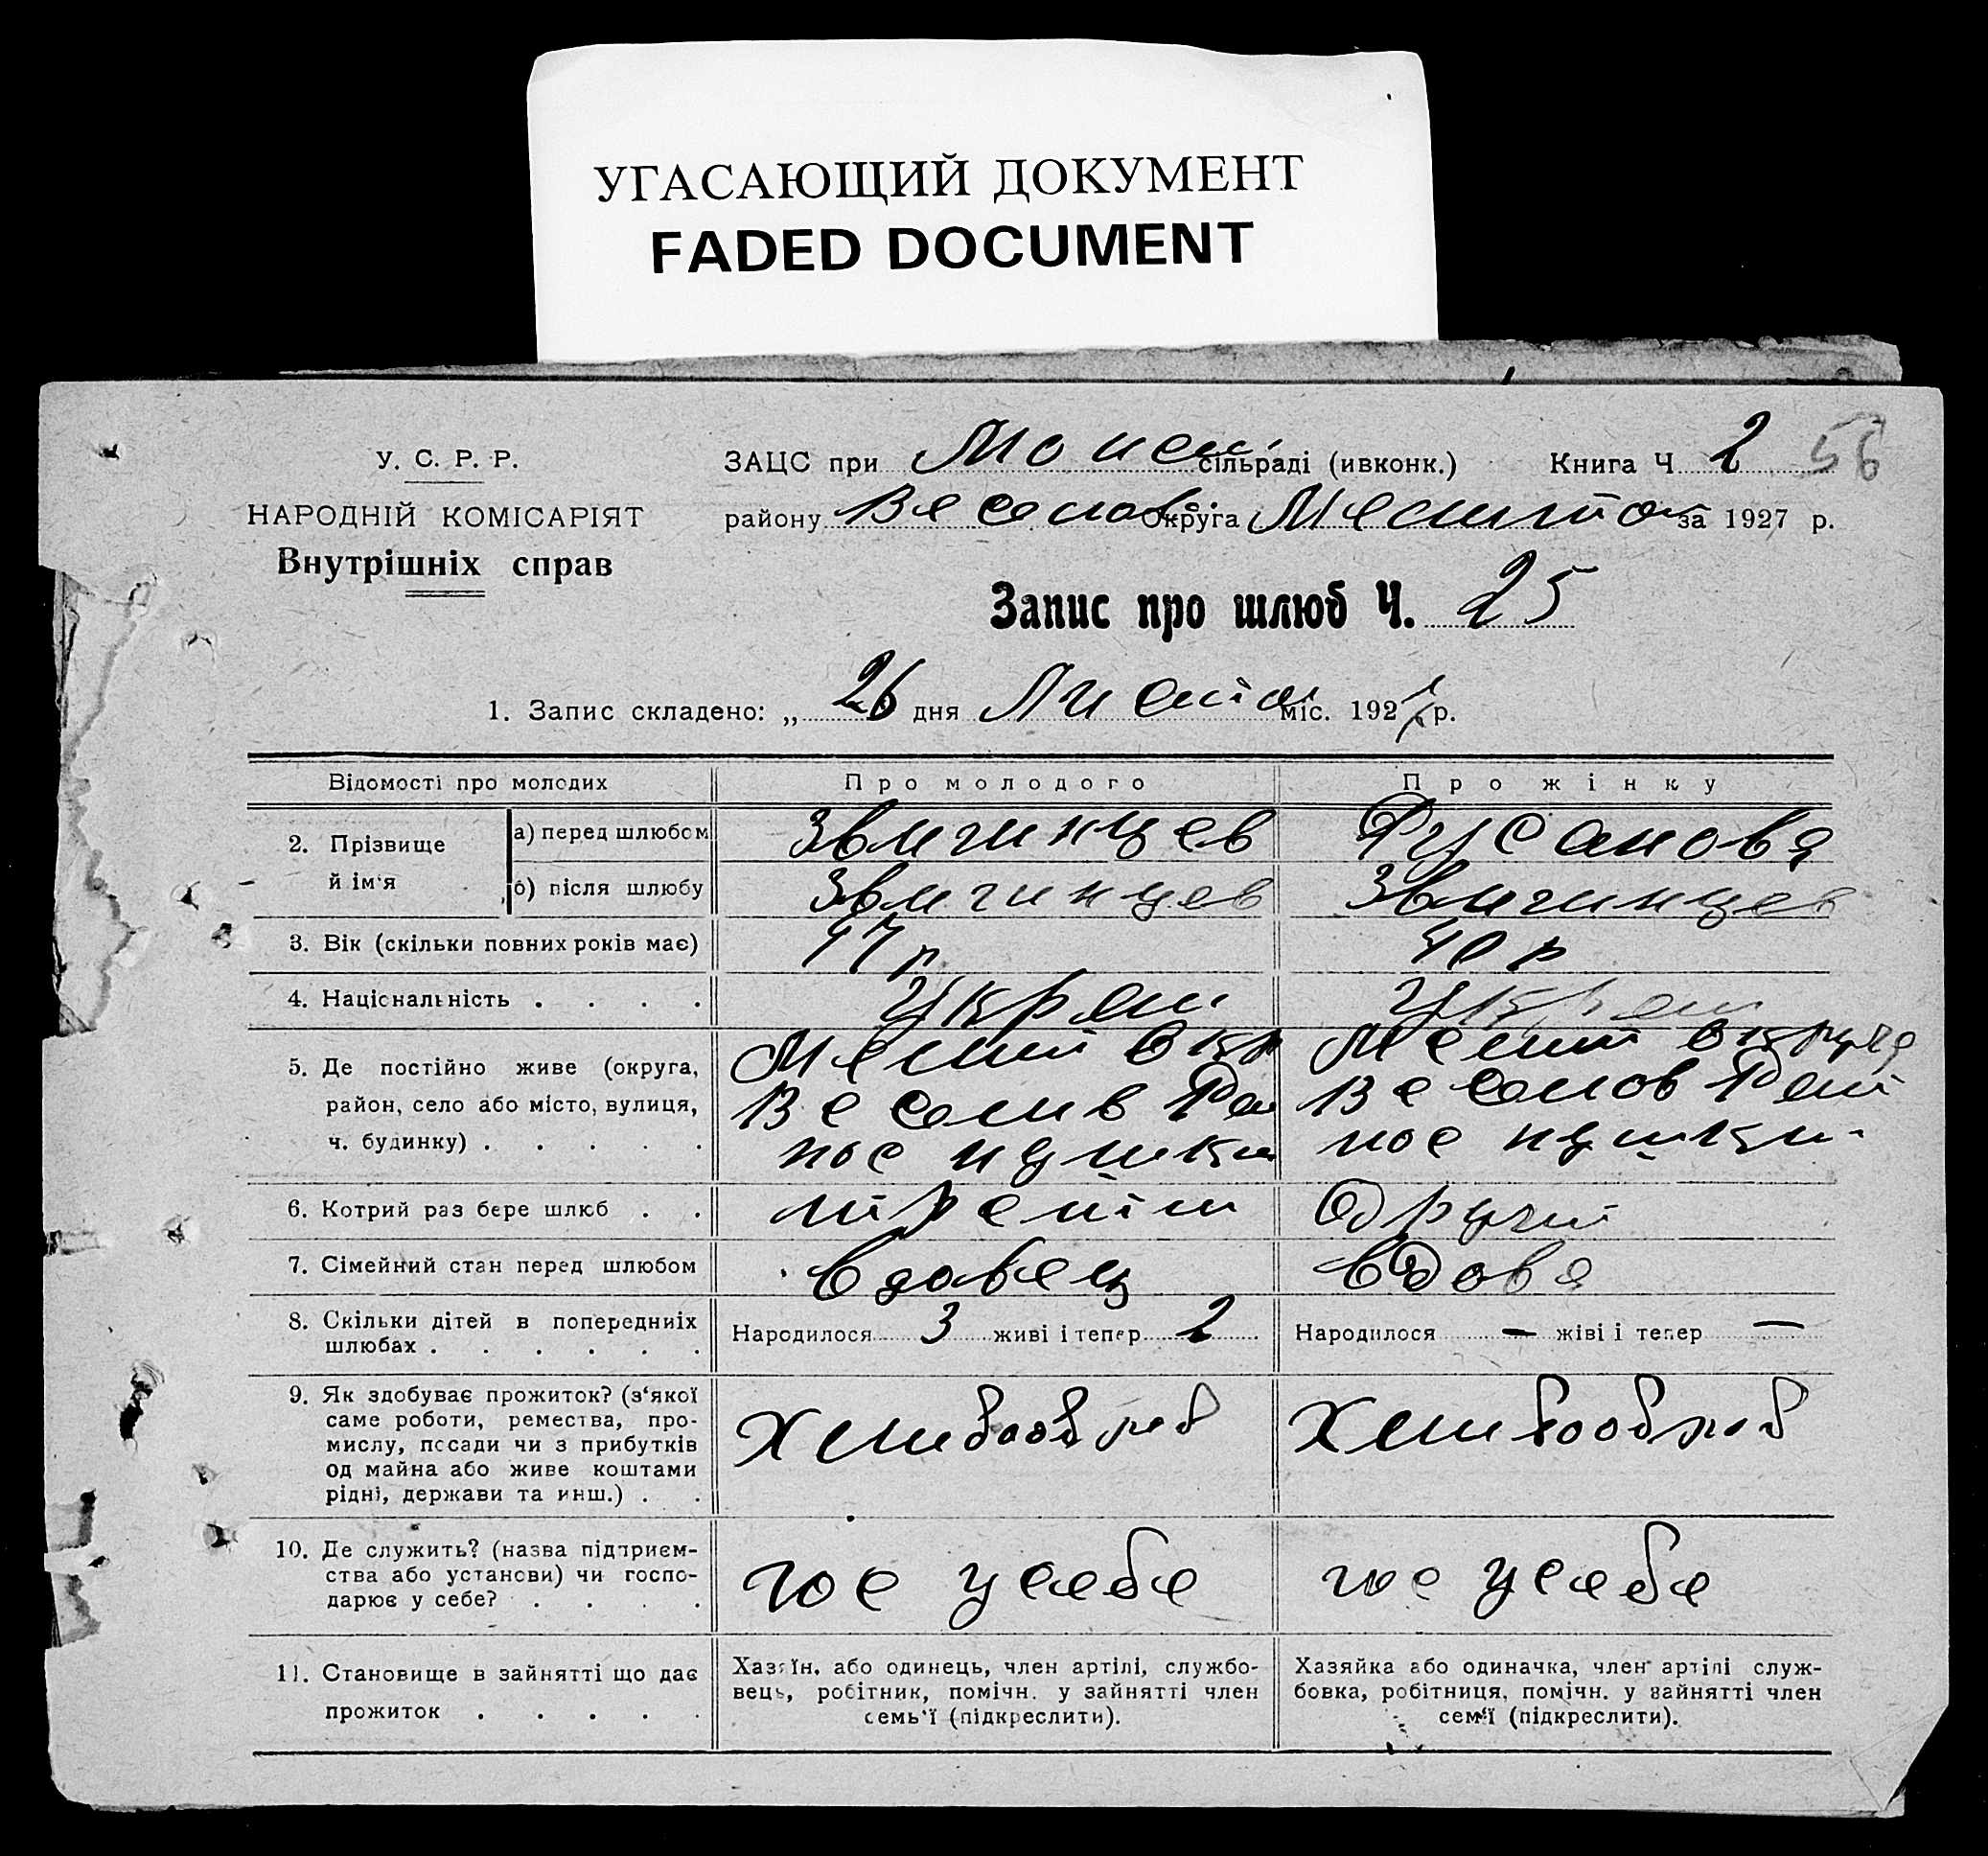 УГАСАЮЩИЙ ДОКУМЕНТ
FADED DOCUMENT
У. С. Р. Р.
НАРОДНІЙ КОМІСАРІЯТ
Внутрішніх справ
ЗАЦС при сільраді (ивконк.) Книга Ч 2 56
району Веселов. Округа за 1927 р.
Запис про шлюб Ч. 25
1. Запис складено: „ 26 дня міс. 1927 р.
Відомості про молодих
Про молодого
Про жінку
2. Прізвище й ім'я
а) перед шлюбом
Звягинцев
Русанова
б) після шлюбу
Звягинцев
Звягинцев
3. Вік (скільки повних років має)
47 р
40 р
4. Національність . . . .
Украи
Украи
5. Де постійно живе (округа,
район, село або місто, вулиця,
ч. будинку) . . . . .
Мелит Окр
Веселив Рай
пос пушки
Мелит Округа
Веселов Рай
пос пушки
6. Котрий раз бере шлюб . .
третій
Другий
7. Сімейний стан перед шлюбом
вдовец
вдова
8. Скільки дітей в попередниіх
шлюбах . . . . . .
Народилося 3 живі і тепер 2
Народилося — жіві і тепер —
9. Як здобуває прожиток? (з'якої
саме роботи, ремества, про-
мислу, посади чи з прибутків
од майна або живе коштами
рідні, держави та инш.) . .
Хлибооброб
Хлибооброб
10. Де служить? (назва підприєм-
ства або установи) чи госпо-
дарює у себе? . . . .
гос усебе
гос усебе
11. Становище в зайнятті що дає
прожиток . . . . .
Хазяїн, або одинець, член артілі, службо-
вець, робітник, помічн. у зайнятті член
семь'ї (підкреслити).
Хазяйка або одиначка, член артілі служ-
бовка, робітниця, помічн. у зайнятті член
сем'ї (підкреслити).